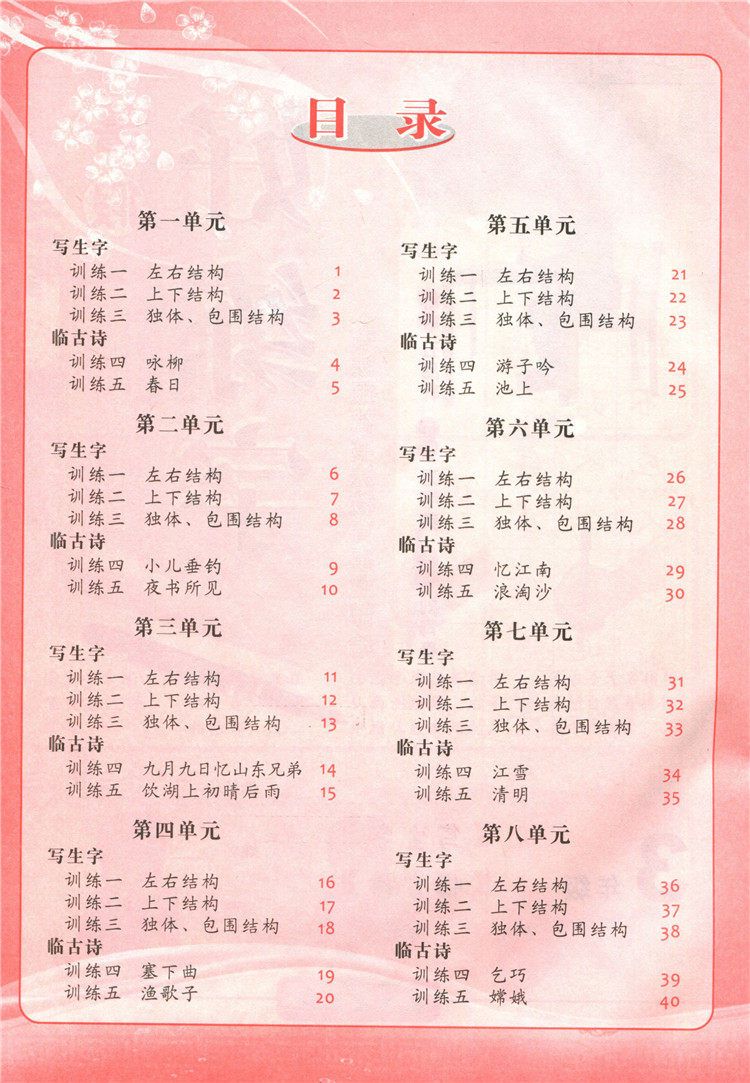 目 录
第一单元
写生字
训练一 左右结构 1
训练二 上下结构 2
训练三 独体、包围结构 3
临古诗
训练四 咏柳 4
训练五 春日 5
第二单元
写生字
训练一 左右结构 6
训练二 上下结构 7
训练三 独体、包围结构 8
临古诗
训练四 小儿垂钓 9
训练五 夜书所见 10
第三单元
写生字
训练一 左右结构 11
训练二 上下结构 12
训练三 独体、包围结构 13
临古诗
训练四 九月九日忆山东兄弟 14
训练五 饮湖上初晴后雨 15
第四单元
写生字
训练一 左右结构 16
训练二 上下结构 17
训练三 独体、包围结构 18
临古诗
训练四 塞下曲 19
训练五 渔歌子 20
第五单元
写生字
训练一 左右结构 21
训练二 上下结构 22
训练三 独体、包围结构 23
临古诗
训练四 游子吟 24
训练五 池上 25
第六单元
写生字
训练一 左右结构 26
训练二 上下结构 27
训练三 独体、包围结构 28
临古诗
训练四 忆江南 29
训练五 浪淘沙 30
第七单元
写生字
训练一 左右结构 31
训练二 上下结构 32
训练三 独体、包围结构 33
临古诗
训练四 江雪 34
训练五 清明 35
第八单元
写生字
训练一 左右结构 36
训练二 上下结构 37
训练三 独体、包围结构 38
临古诗
训练四 乞巧 39
训练五 嫦娥 40